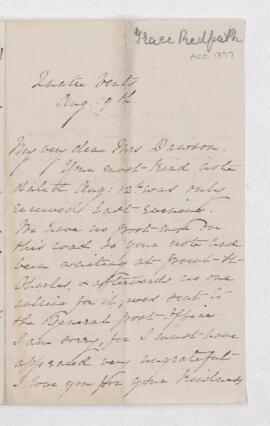 Grace Redpath
ACC. 1377
Aug. 19th
My very dear Mrs Dawson.
Your most kind note
dated Aug: 12th was only
received last evening.
We have no post-men on
this road so your note had
been waiting at
Charles, & afterwards no one
calling for it; was sent to
the General post-office.
I am sorry, for I must have
appeared very ungrateful
I love you for your kindness